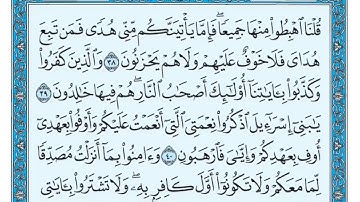 قُلْنَا ٱهْبِطُوا۟ مِنْهَا جَمِيعًۭا ۖ فَإِمَّا يَأْتِيَنَّكُم مِّنِّى هُدًۭى فَمَن تَبِعَ
هُدَاىَ فَلَا خَوْفٌ عَلَيْهِمْ وَلَا هُمْ يَحْزَنُونَ ٣٨ وَٱلَّذِينَ كَفَرُوا۟
وَكَذَّبُوا۟ بِـَٔايَـٰتِنَآ أُو۟لَـٰٓئِكَ أَصْحَـٰبُ ٱلنَّارِ ۖ هُمْ فِيهَا خَـٰلِدُونَ ٣٩
يَـٰبَنِىٓ إِسْرَٰٓءِيلَ ٱذْكُرُوا۟ نِعْمَتِىَ ٱلَّتِىٓ أَنْعَمْتُ عَلَيْكُمْ وَأَوْفُوا۟ بِعَهْدِىٓ
أُوفِ بِعَهْدِكُمْ وَإِيَّـٰىَ فَٱرْهَبُونِ ٤٠ وَءَامِنُوا۟ بِمَآ أَنزَلْتُ مُصَدِّقًۭا
لِّمَا مَعَكُمْ وَلَا تَكُونُوٓا۟ أَوَّلَ كَافِرٍۭ بِهِۦ ۖ وَلَا تَشْتَرُوا۟ بِـَٔايَـٰتِى